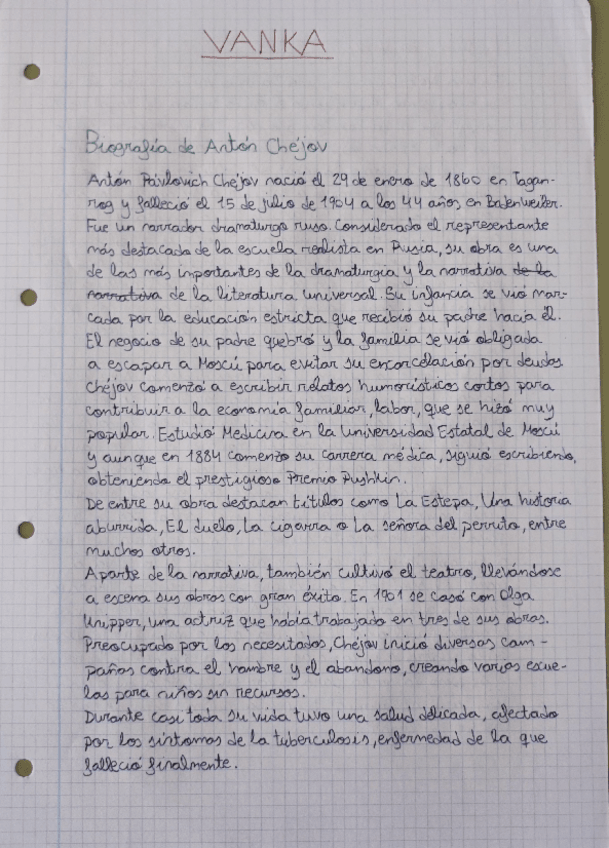 VANKA
Biografía de Antón Chéjov
Antón Pávlovich Chéjov nació el 29 de enero de 1860 en Tagan-
rog y falleció el 15 de julio de 1904 a los 44 años en Badenweiler.
Fue un narrador dramaturgo ruso. Considerado el representante
más destacado de la escuela realista en Rusia, su obra es una
de las más importantes de la dramaturgia y la narrativa de la
narrativa de la literatura universal. Su infancia se vió mar-
cada por la educación estricta que recibió su padre hacia él.
El negocio de su padre quebró y la familia se vió obligada
a escapar a Moscú para evitar su encarcelación por deudas.
Chéjov comenzó a escribir relatos humorísticos cortos para
contribuir a la economía familiar, labor, que se hizó muy
popular. Estudió Medicina en la Universidad Estatal de Moscú
y aunque en 1884 comenzo su carrera médica, siguió escribiendo,
obteniendo el prestigioso Premio Pushkin.
De entre su obra destacan títulos como La Estepa, Una historia
aburrida, El duelo, La cigarra o La señora del perrito, entre
muchos otros.
Aparte de la narrativa, también cultivó el teatro, llevándose
a escena sus obras con gran éxito. En 1901 se casó con Olga
Knipper, una actriz que había trabajado en tres de sus obras.
Preocupado por los necesitados, Chéjov inició diversas cam-
pañas contra el hambre y el abandono, creando varias escue-
las para niños sin recursos.
Durante casi toda su vida tuvo una salud delicada, afectado
por los síntomas de la tuberculosis, enfermedad de la que
falleció finalmente.